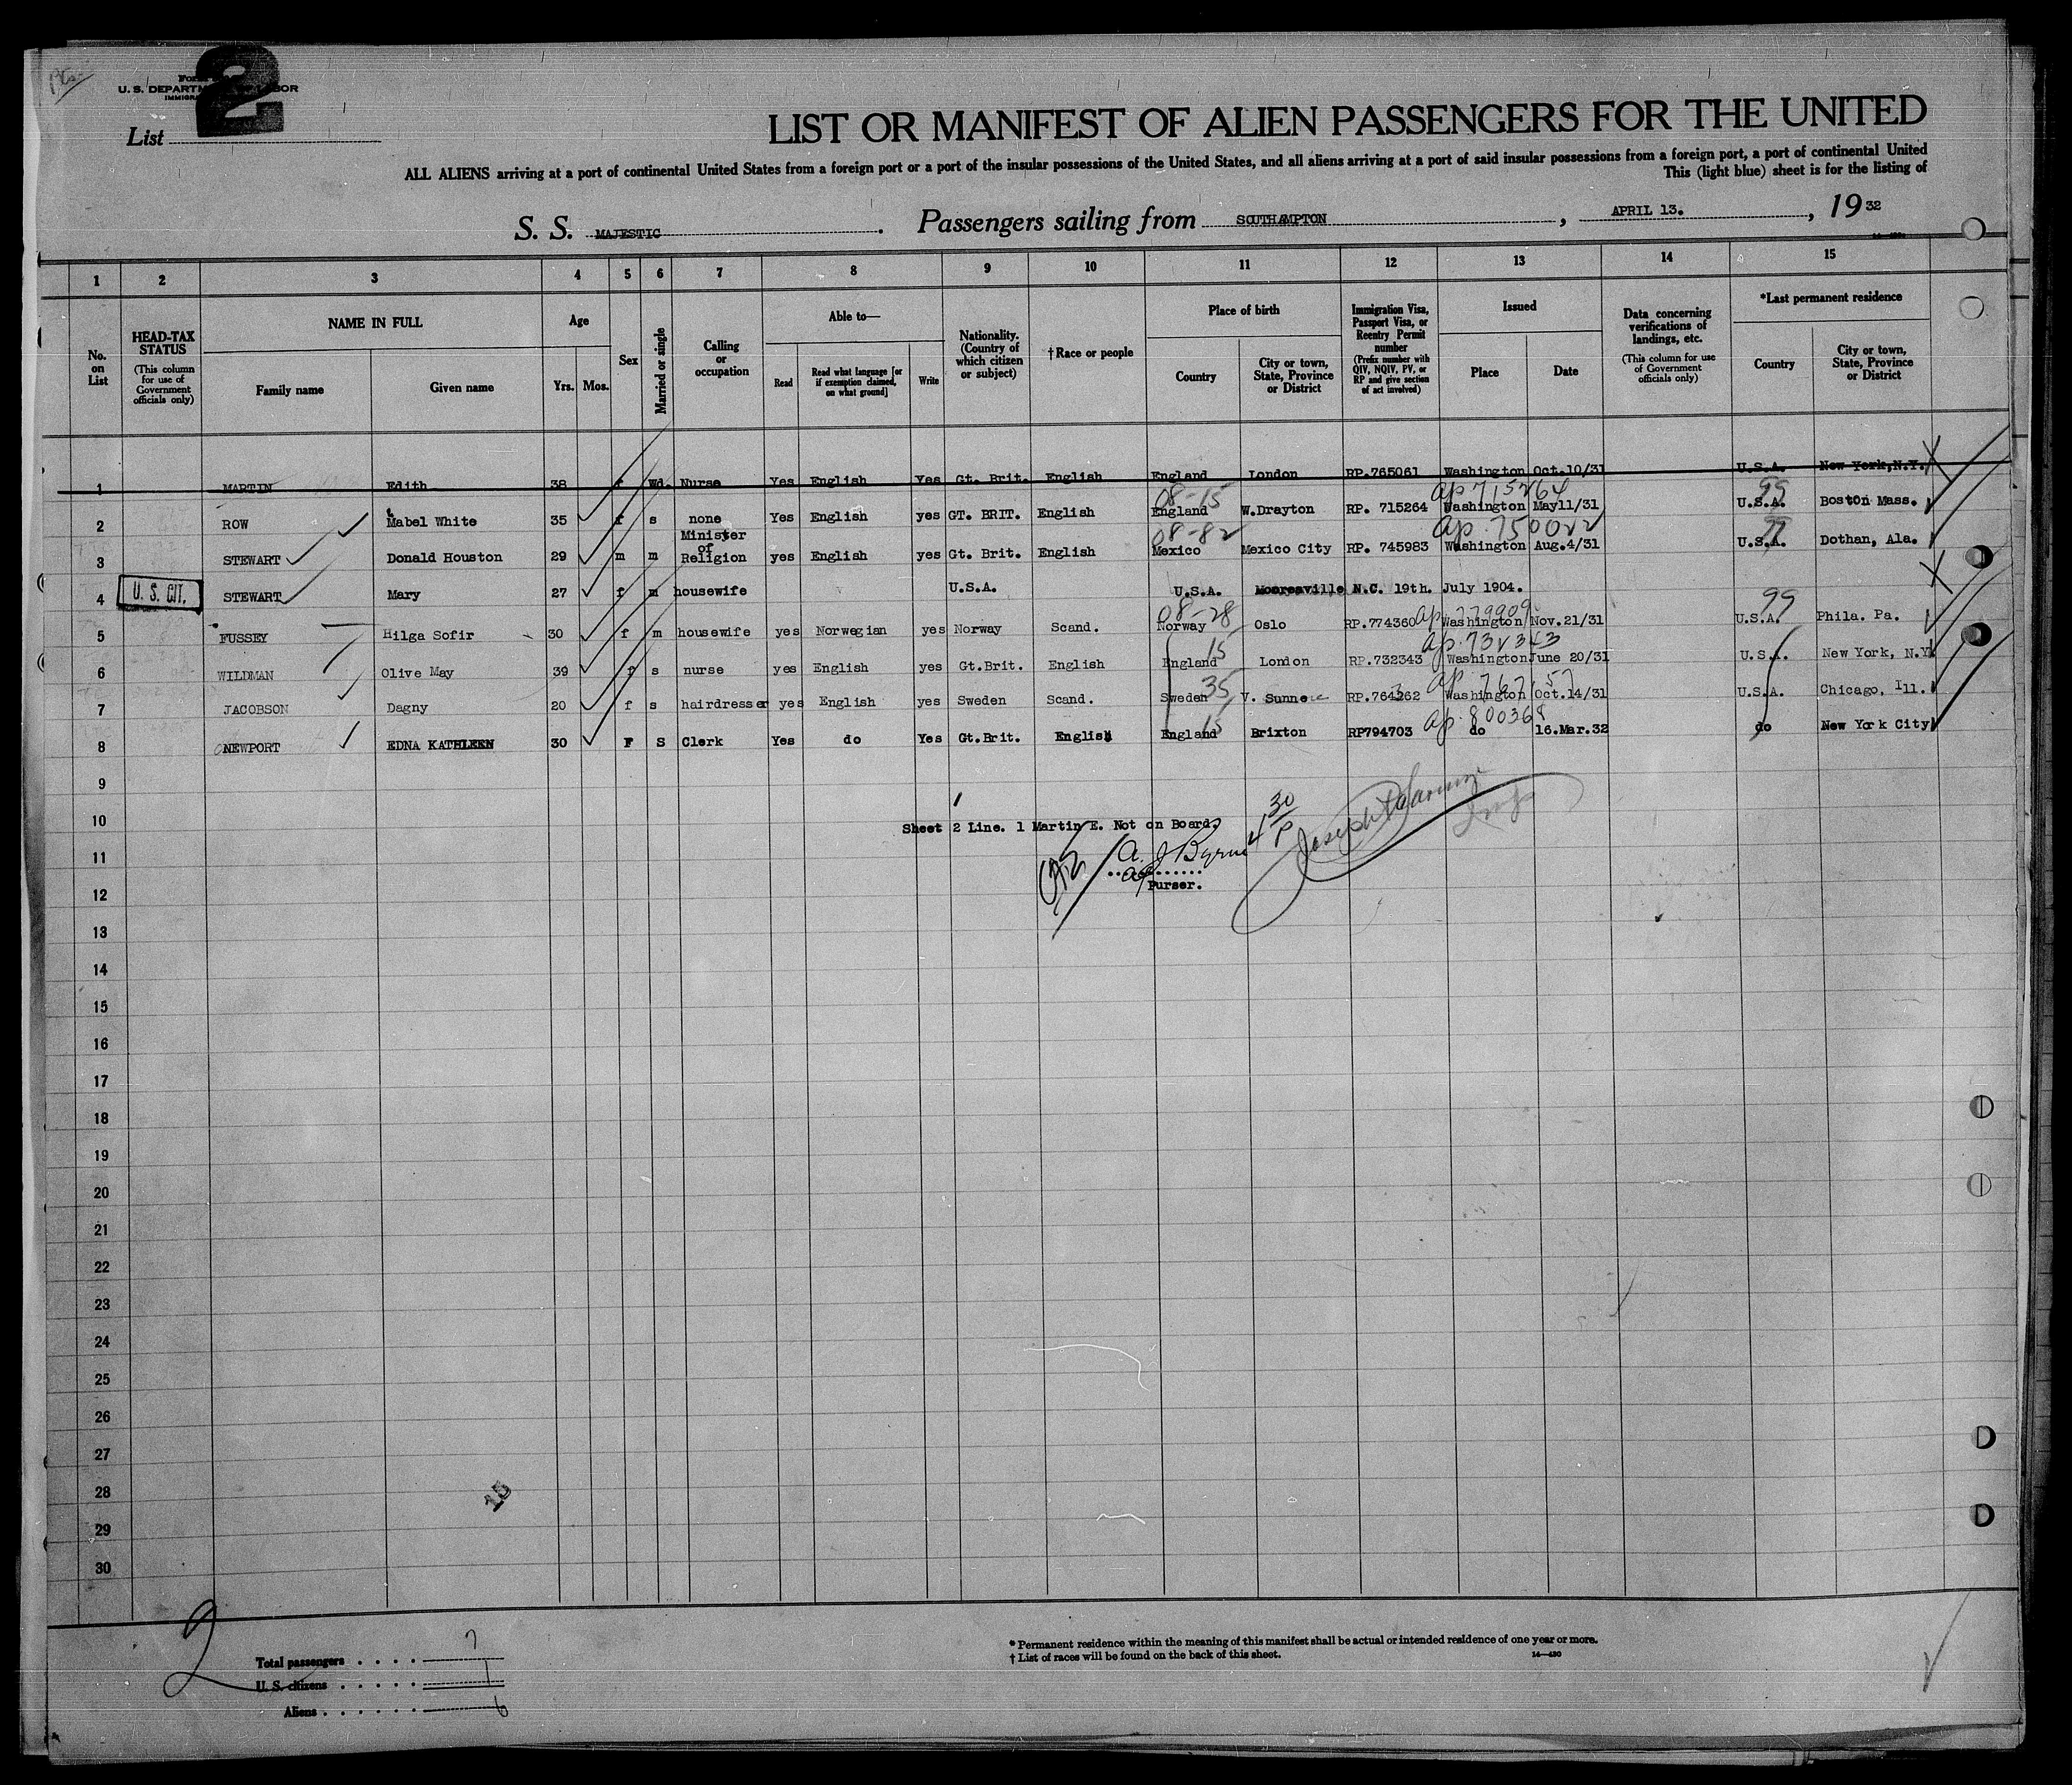 Form
U. S. DEPARTMENT OF LABOR
List 2
LIST OR MANIFEST OF ALIEN PASSENGERS FOR THE UNITED
ALL ALIENS arriving at a port of continental United States from a foreign port or a port of the insular possessions of the United States, and all aliens arriving at a port of said insular possessions from a foreign port, a port of continental United
This (light blue) sheet is for the listing of
S. S. MAJESTIC. Passengers sailing from SOUTHAMPTON, APRIL 13., 1932
1 2 3 4 5 6 7 8 9 10 11 12 13 14 15
No. on List
HEAD-TAX STATUS (This column for use of Government officials only)
NAME IN FULL Family name Given name
Age Yrs. Mos.
Sex
Married or single
Calling or occupation
Able to— Read Read what language [or if exemption claimed, on what ground] Write
Nationality. (Country of which citizen or subject)
†Race or people
Place of birth Country City or town, State, Province or District
Immigration Visa, Passport Visa, or Reentry Permit number (Prefix number with QIV, NQIV, PV, or RP and give section of act involved)
Issued Place Date
Data concerning verifications of landings, etc. (This column for use of Government officials only)
*Last permanent residence Country City or town, State, Province or District
1 MARTIN Edith 38 f Wd. Nurse Yes English Yes Gt. Brit. English England London RP.765061 Washington Oct.10/31 U.S.A. New York,N.Y.
08-15 ap 715264 99
2 ROW Mabel White 35 f s none Yes English yes GT. BRIT. English England W.Drayton RP. 715264 Washington May11/31 U.S.A. Boston Mass.
08-82 ap. 750022
3 STEWART Donald Houston 29 m m Minister of Religion yes English yes Gt. Brit. English Mexico Mexico City RP. 745983 Washington Aug.4/31 U.S.A. Dothan, Ala.
4 U. S. CIT. STEWART Mary 27 f m housewife U.S.A. U.S.A. Mooresville N.C. 19th. July 1904.
08-28 ap 779909 99
5 FUSSEY Hilga Sofir 30 f m housewife yes Norwegian yes Norway Scand. Norway Oslo RP.774360 Washington Nov.21/31 U.S.A. Phila. Pa.
15 ap. 732343
6 WILDMAN Olive May 39 f s nurse yes English yes Gt.Brit. English England London RP.732343 Washington June 20/31 U.S.A. New York, N.Y.
35
7 JACOBSON Dagny 20 f s hairdresser yes English yes Sweden Scand. Sweden V. Sunne RP.764362 Washington Oct.14/31 U.S.A. Chicago, Ill.
15 ap. 800368
8 NEWPORT EDNA KATHLEEN 30 F S Clerk Yes do Yes Gt.Brit. English England Brixton RP794703 do 16.Mar.32 do New York City
9
10 Sheet 2 Line. 1 Martin E. Not on Board.
4 30 P
11 A. J Byrne
12 Purser.
13
14
15
16
17
18
19
20
21
22
23
24
25
26
27
28
29
30
15
2
Total passengers 7
U. S. citizens 1
Aliens 6
* Permanent residence within the meaning of this manifest shall be actual or intended residence of one year or more.
† List of races will be found on the back of this sheet.
14—480